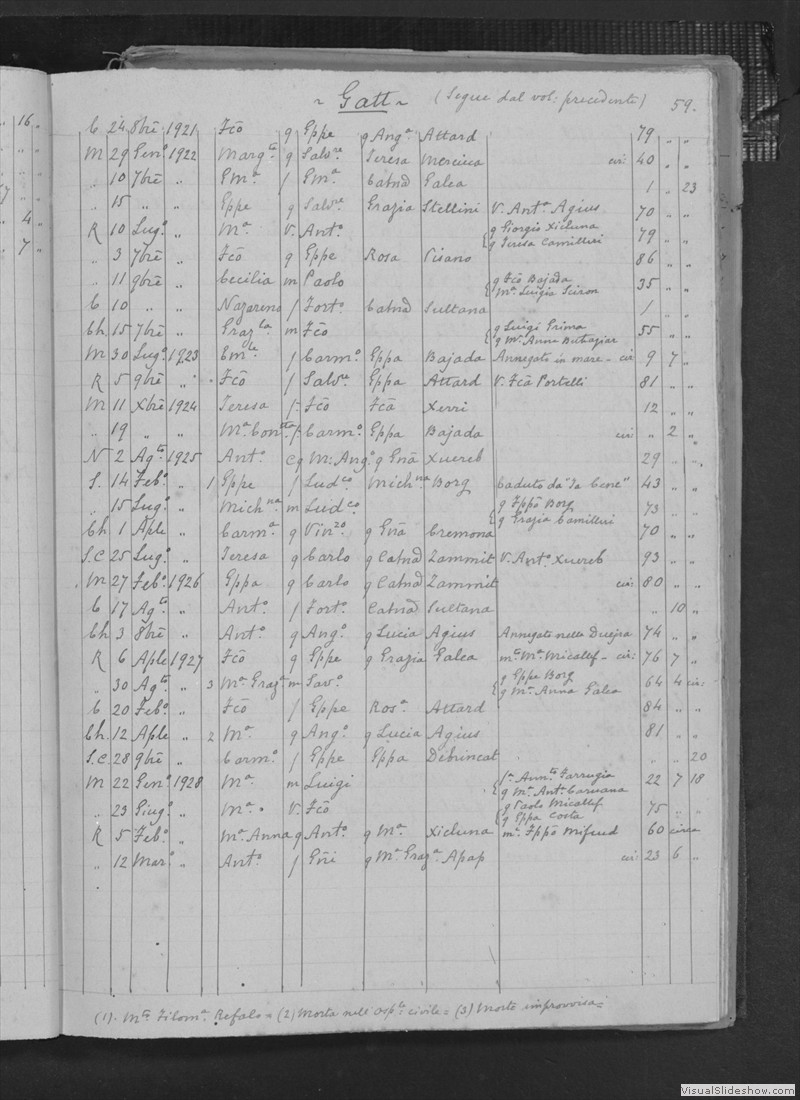 ~ Gatt ~ (Segue dal vol: precedente) 59.
16 "
4 "
7 "
C 24 8bre 1921 Fco g Gppe g Anga Attard 79 " "
M 29 Geno 1922 Margta g Salvre Teresa Mercieca cir: 40 " "
" 10 7bre " Gma f Gma Catnã Galea 1 " 23
" 15 " " Gppe g Salvre Grazia Stellini V. Anta Agius 70 " "
R 10 Lugo " Ma V. Anto { g Giorgio Xicluna 79 " "
g Teresa Camilleri
" 3 7bre " Fco g Gppe Rosa Pisano 86 " "
" 11 9bre " Cecilia m Paolo { g Fco Bajada 35 " "
Ma Luigia
C 10 " " Nazareno f Forto Catnã Sultana 1 " "
Ch. 15 7bre " Grazla m Fco { g Luigi Grima 55 " "
g Ma Anna Buttagiar
M 30 Lugo 1923 Emle f Carmo Gppa Bajada Annegato in mare - cir 9 7 "
R 5 9bre " Fco f Salvre Gppa Attard V. Fca Portelli 81 " "
M 11 Xbre 1924 Teresa f Fco Fca Xerri 12 " "
" 19 " " Ma Contta f Carmo Gppa Bajada cir: " 2 "
N 2 Agto 1925 Anto g M. Ango g Gna Xuereb 29 " "
S. 14 Febo " 1 Gppe f Ludco Michna Borg Caduto da "Ta Cenc" 43 " "
" 15 Lugo " Michna m Ludco { g Fppo Borg 73 " "
g Grazia Camilleri
Ch 1 Aple " Carma g Vinzo g Gna Cremona 70 " "
S.C 25 Lugo " Teresa g Carlo g Catnã Zammit V. Anto Xuereb 93 " "
M 27 Febo 1926 Gppa g Carlo g Catnã Zammit cir: 80 " "
C 17 Agto " Anto f Forto Catnã Sultana " 10 "
Ch 3 8bre " Anto g Ango g Lucia Agius Annegato nella Duejra 74 " "
R 6 Aple 1927 Fco g Gppe g Grazia Galea mto Ma Micallef - cir: 76 7 "
" 30 Agto " 3 Ma Graza m Savo { g Gppe Borg 64 4 cir:
g Ma Anna Galea
C 20 Febo " Fco f Gppe Rosa Attard 84 " "
Ch. 12 Aple " 2 Ma g Ango g Lucia Agius 81 " "
S.C. 28 9bre " Carmo f Gppe Gppa Debrincat " " 20
M 22 Geno 1928 Ma m Luigi { Farrugia 22 7 18
g Ma Anta Caruana
" 23 Giugo " Ma V. Fco { g Paolo Micallef 75 " "
g Gppa Costa
R 5 Febo " Ma Anna g Anto g Ma Xicluna mta Fppo Mifsud 60 circa
" 12 Maro " Anto f Gni g Ma Graza Apap cir: 23 6 "
(1). Mto Filoma Refalo = (2) Morta nell' osple civile = (3) Morte improvvisa =
VisualSlideshow.com